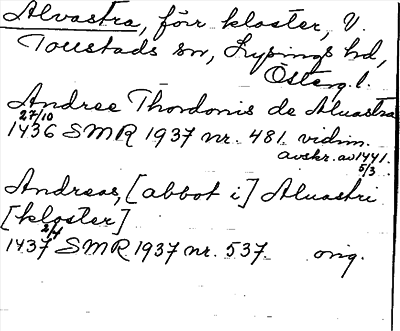 Alvastra, förr kloster, V.
Tollstads sn, Lysings hd,
Österg. l.
Andree Thordonis de Aluastra
27/10
1436 SMR 1937 nr. 481. vidim.
avskr. av 1441.
5/3
Andreas, [abbot i] Aluastri
[kloster]
2/4
1437 SMR 1937 nr. 537. orig.